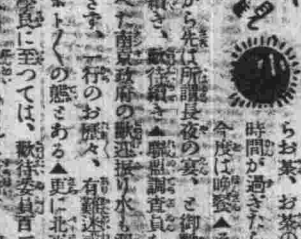 らお茶、お茶
時間が過ぎた
今度は晩餐▲
から先は所謂長夜の宴、と御
続き、歓待続き▲聯盟調査員
た南京政府の歓迎振り水も
きず、一行のお歴々、有難迷
ト〳〵の態とある▲更に北
民に至つては、歓待委員百